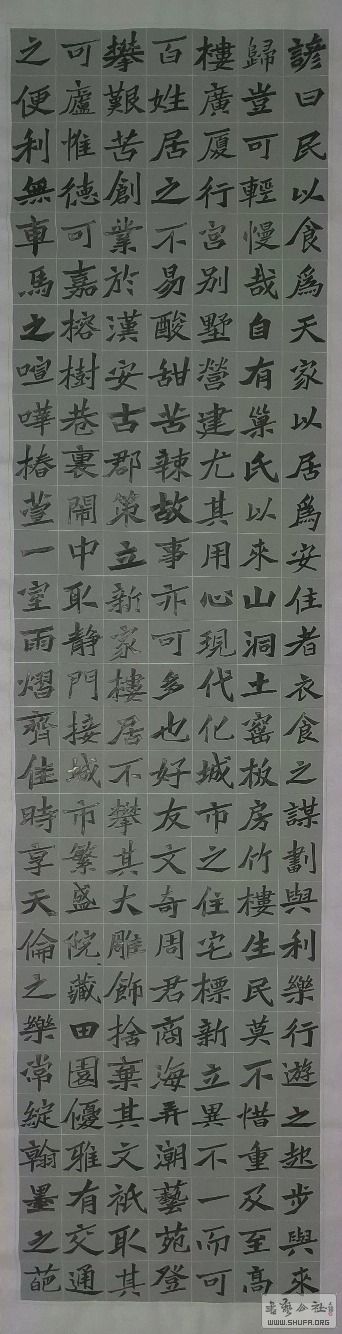 諺曰民以食為天家以居為安住者衣食之謀劃與利樂行遊之起步與來
歸豈可輕慢哉自有巢氏以來山洞土窰板房竹樓生民莫不惜重及至高
樓廣厦行宮別墅營建尤其用心現代化城市之住宅標新立異不一而可
百姓居之不易酸甜苦辣故事亦可多也好友文奇周君商海弄潮藝苑登
攀艱苦創業於漢安古郡策立新家樓居不攀其大雕飾捨棄其文祇取其
可廬惟德可嘉榕樹巷裏鬧中取靜門接城市繁盛院藏田園優雅有交通
之便利無車馬之喧嘩椿萱一室雨熠齊佳時享天倫之樂常綻翰墨之葩
書藝公社
WWW.SHUFA.ORG